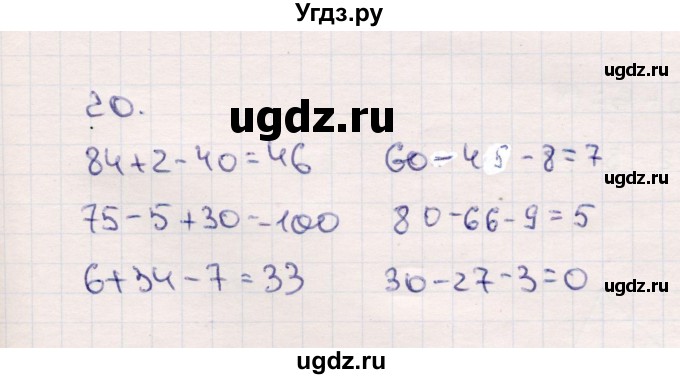 Угдз.ру
ugdz.ru
20.
ugdz.ru
84+2-40=46
60-45-8=7
ugdz.ru
75-5+30=100
80-66-9=5
6+34-7=33
30-27-3=0
ugdz.ru
ugdz.ru